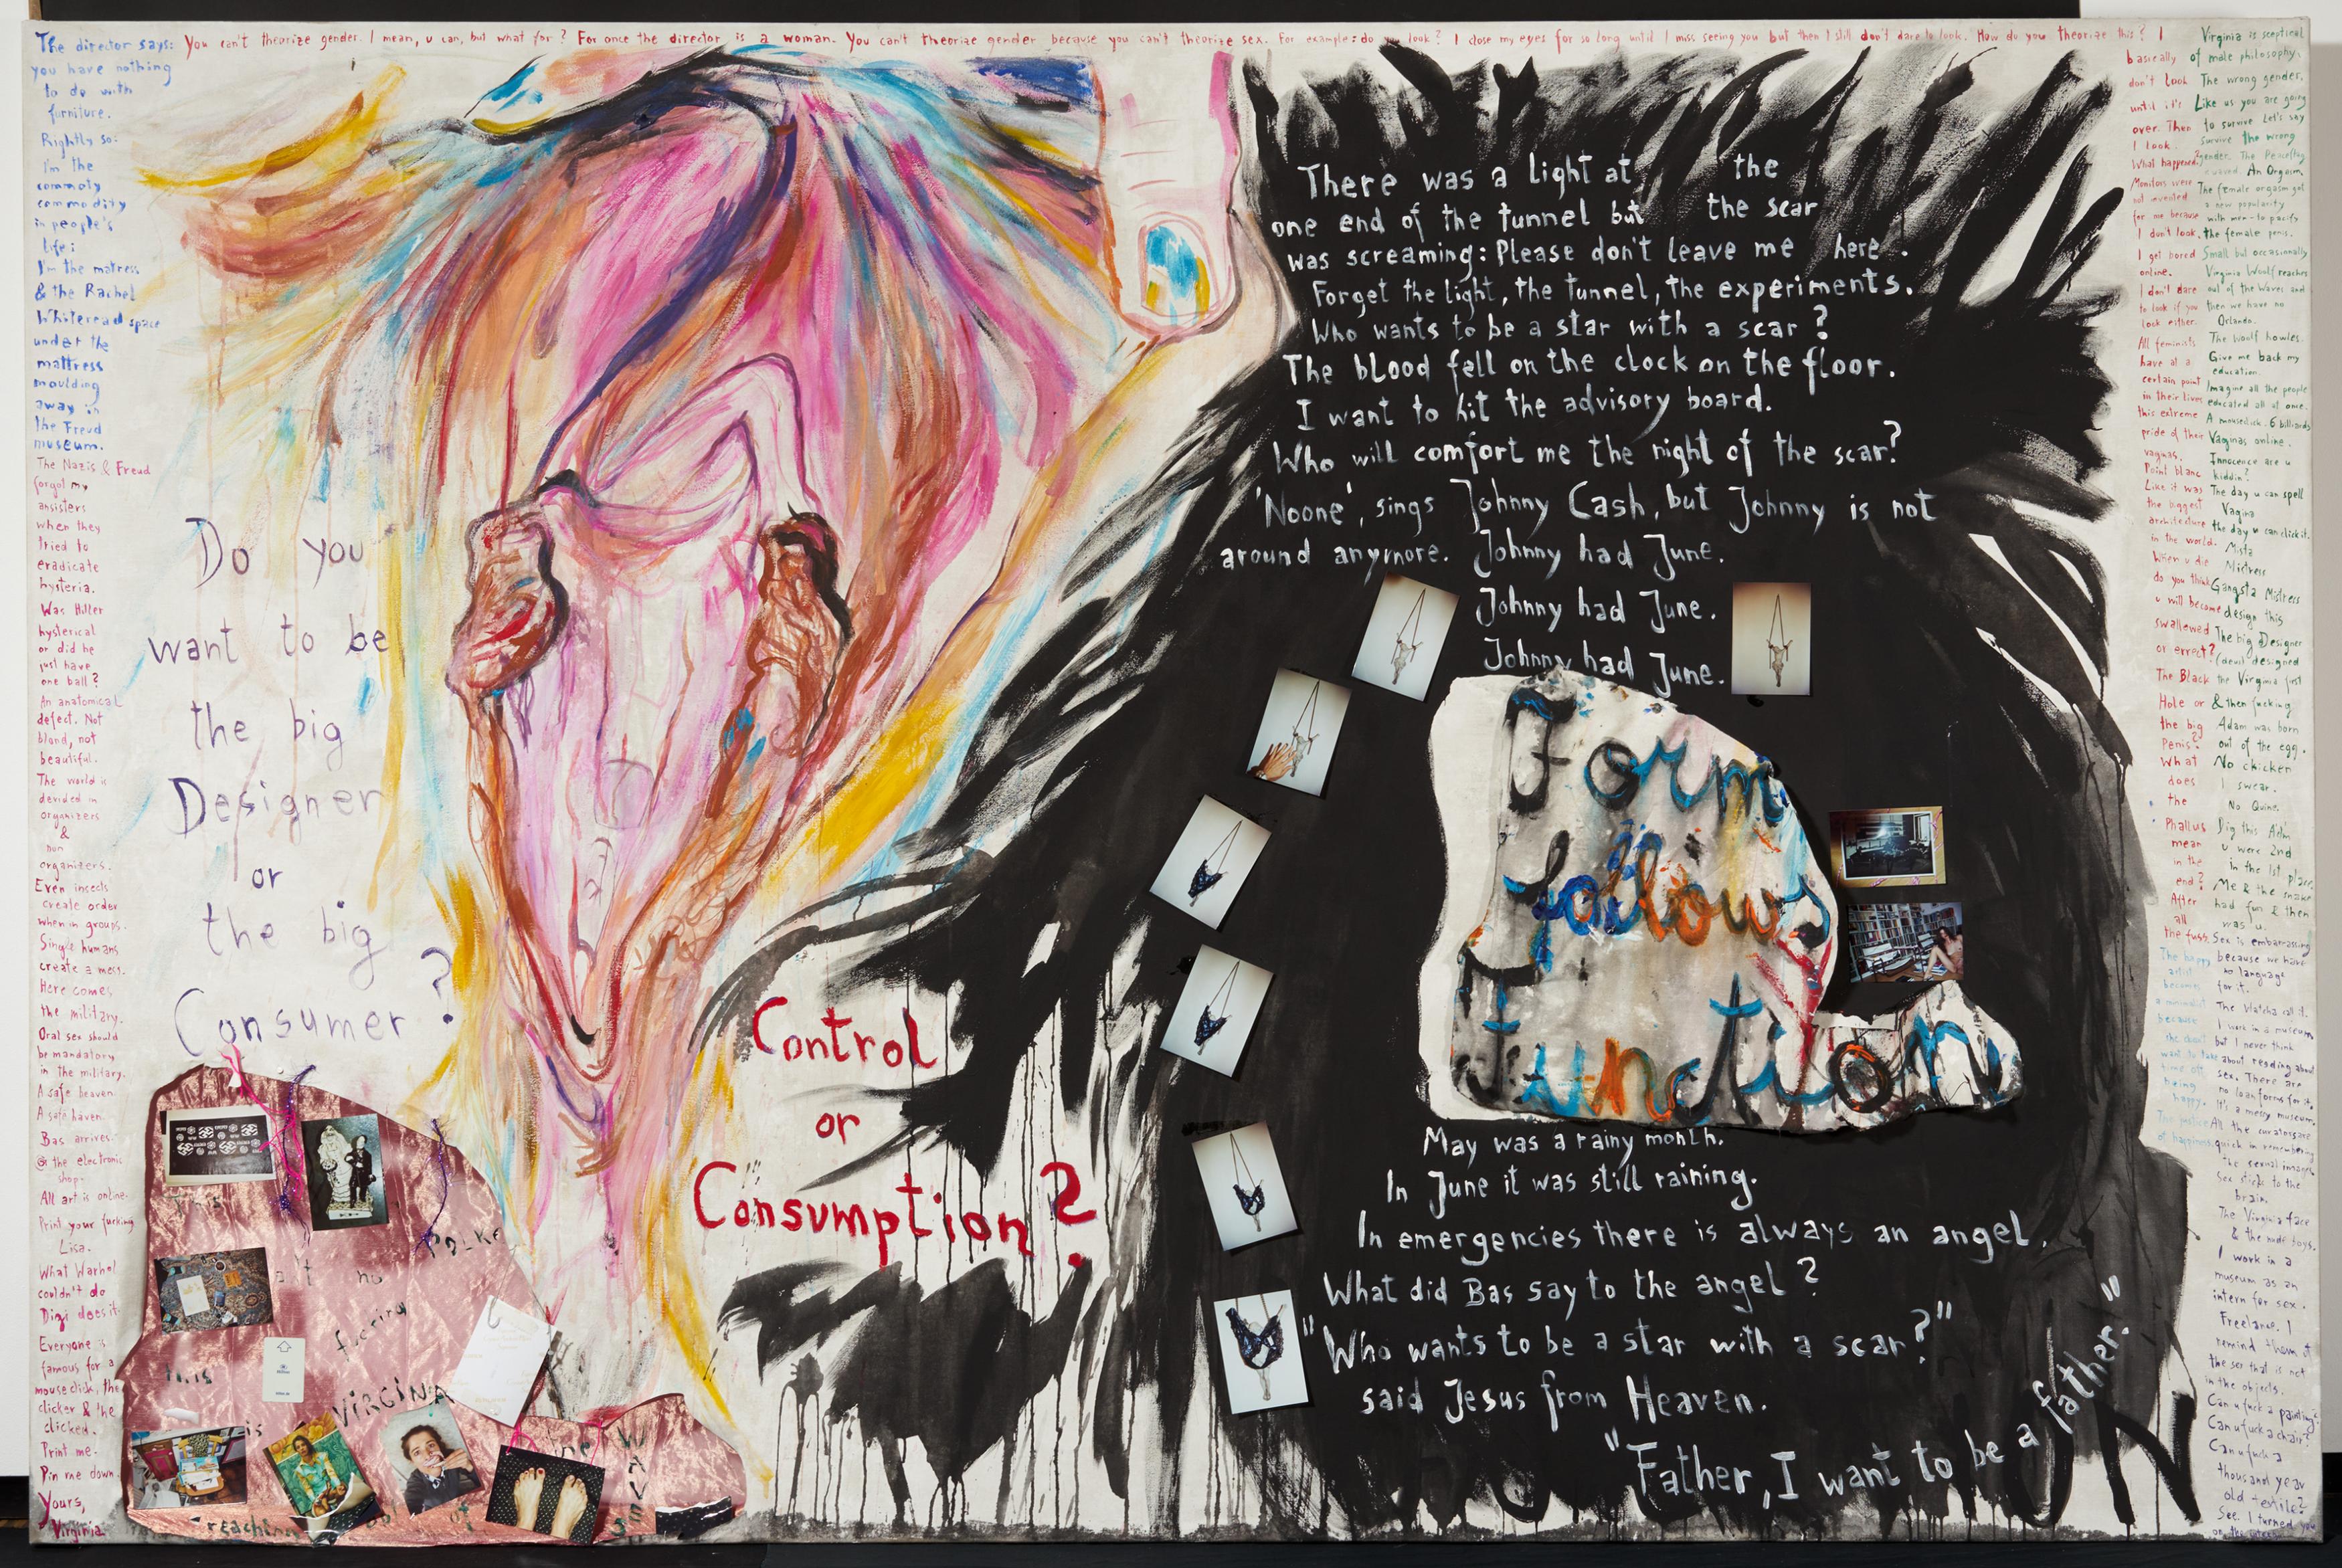 The director says: You can't theorize gender. I mean, u can, but what for? For once the director is a woman. You can't theorize gender because you can't theorize sex. For example: do you look? I close my eyes for so long until I miss seeing you but then I still don't dare to look. How do you theorize this? I
you have nothing
to do with
furniture.
Rightly so:
I'm the
commoty
commodity
in people's
life:
I'm the matress
& the Rachel
Whiteread space
under the
mattress
moulding
away in
the Freud
museum.
The Nazis & Freud
forgot my
ansisters
when they
tried to
eradicate
hysteria.
Was Hitler
hysterical
or did he
just have
one ball?
An anatomical
defect. Not
blond, not
beautiful.
The world is
devided in
organizers
&
non
organizers.
Even insects
create order
when in groups.
Single humans
create a mess.
Here comes
the military.
Oral sex should
be mandatory
in the military.
A safe heaven.
A safe haven.
Bas arrives
@ the electronic
shop.
All art is online.
Print your fucking
Lisa.
What Warhol
couldn't do
Digi does it.
Everyone is
famous for a
mouse click, the
clicker & the
clicked.
Print me.
Pin me down.
Yours,
Virginia
Do you
want to be
the big
Designer
or
the big
Consumer?
This
no
fucking
this
is
VIRGINA
the WAVES
reaching out of
Control
or
Consumption?
There was a light at the
one end of the tunnel but the scar
was screaming: Please don't leave me here.
Forget the light, the tunnel, the experiments.
Who wants to be a star with a scar?
The blood fell on the clock on the floor.
I want to hit the advisory board.
Who will comfort me the night of the scar?
'Noone', sings Johnny Cash, but Johnny is not
around anymore. Johnny had June.
Johnny had June.
Johnny had June.
Form
follows
Function
May was a rainy month.
In June it was still raining.
In emergencies there is always an angel.
What did Bas say to the angel?
"Who wants to be a star with a scar?"
said Jesus from Heaven.
"Father, I want to be a father."
basically
don't look
until it's
over. Then
I look.
What happened?
Monitors were
not invented
for me because
I don't look.
I get bored
online.
I don't dare
to look if you
look either.
All feminists
have at a
certain point
in their lives
this extreme
pride of their
vaginas.
Point blanc
Like it was
the biggest
architecture
in the world.
When u die
do you think
u will become
swallowed
or errect?
The Black
Hole or
the big
Penis?
What
does
the
Phallus
mean
in the
end?
After
all
the fuss.
The happy
artist
becomes
a minimalist
because
she don't
want to take
time off
being
happy.
The justice
of happiness.
Virginia is sceptical
of male philosophy:
The wrong gender.
Like us you are going
to survive Let's say
survive the wrong
gender. The Peace
An Orgasm
The female orgasm got
a new popularity
with men - to pacify
the female penis.
Small but occasionally
Virginia Woolf reaches
out of the Waves and
then we have no
Orlando.
The Woolf howles.
Give me back my
education.
Imagine all the people
educated all at once.
A mouseclick. 6 billiards
Vaginas online.
Innocence are u
kiddin?
The day u can spell
Vagina
the day u can click it.
Mista
Mistress
Gangsta Mistress
design this
The big Designer
(devil) designed
the Virginia first
& then fucking
Adam was born
out of the egg.
No chicken
I swear.
No Quine.
Dig this Adam
u were 2nd
in the 1st place.
Me & the snake
had fun & then
was u.
Sex is embarrassing
because we have
no language
for it.
The Watcha call it.
I work in a museum
but I never think
about reading about
sex. There are
no loanforms for it.
It's a messy museum.
All the curators are
quick in remembering
the sexual images
Sex sticks to the
brain.
The Virginia face
& the nude boys.
I work in a
museum as an
intern for sex.
Freelance. I
remind them of
the sex that is not
in the objects.
Can u fuck a painting?
Can u fuck a chair?
Can u fuck a
thousand year
old textile?
See. I turned you
on